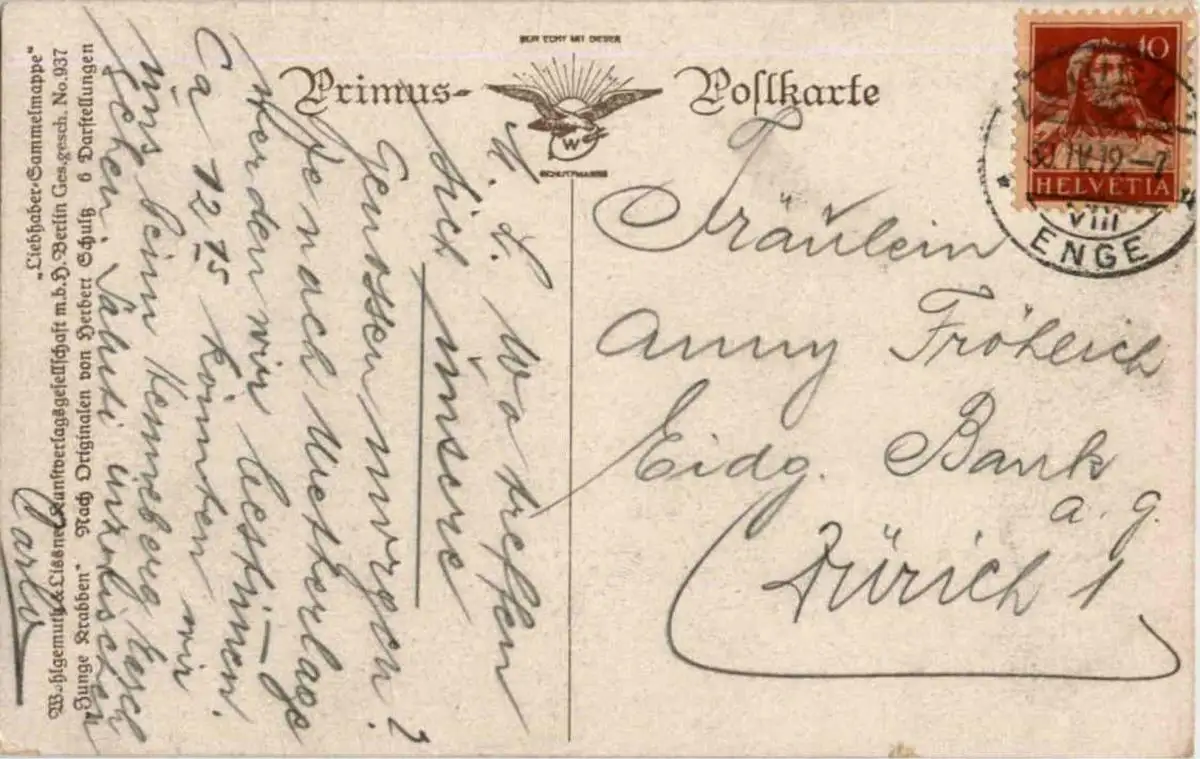 NUR ECHT MIT DIESER
Primus-Postkarte
W
SCHUTZMARKE
10
HELVETIA
30.IV.19-7
VIII
ENGE
Fräulein
Anny Fröhlich
Eidg. Bank
a. g.
Zürich 1
M. L. Wo treffen
sich unsere
Genossen morgen?
Je nach Wetterlage
werden wir bestimmen.
Ca 12 15 könnten wir
uns beim Kennelberg
gehen
Carlo
„Liebhaber-Sammelmappe“
Wohlgemuth & Lissner Kunstverlagsgesellschaft m.b.H. Berlin Ges. gesch. No. 937
„Junge Krabben“ Nach Originalen von Herbert Schultz 6 Darstellungen